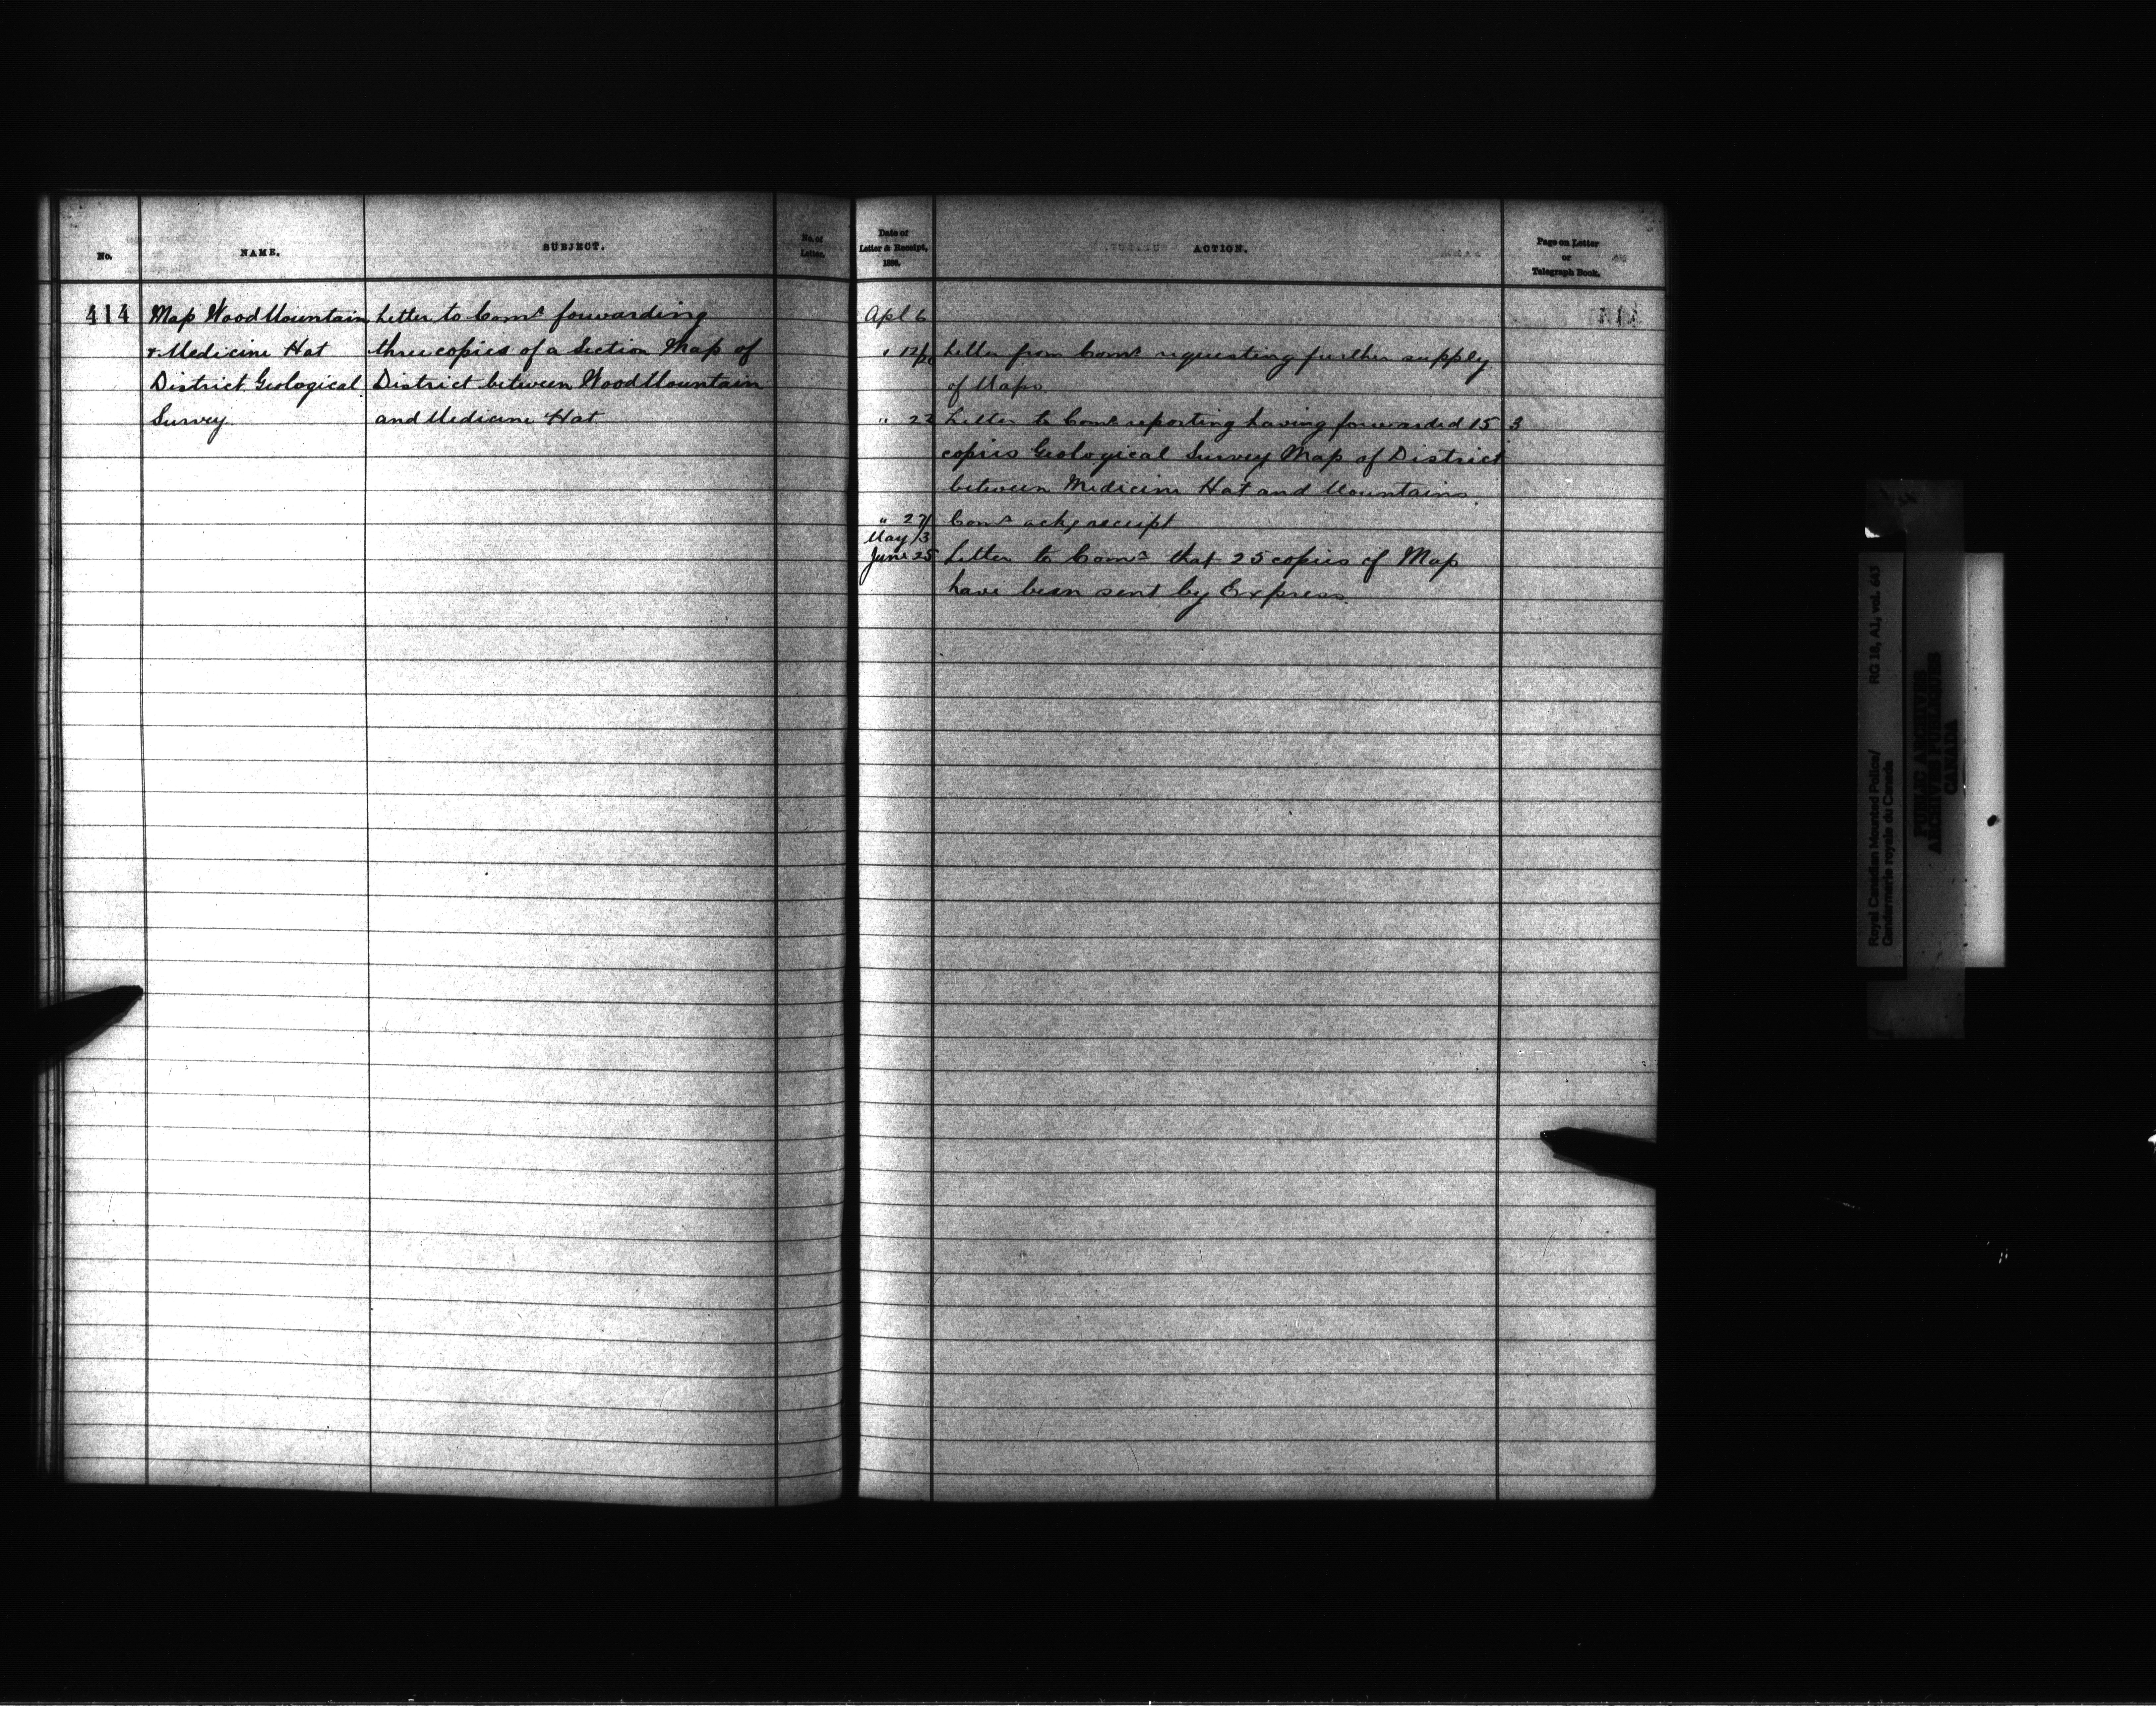 No.
NAME.
SUBJECT.
No. of
Letter.
414
Map Wood Mountain
& Medicine Hat
District Geological
Survey.
Letter to Comr forwarding
three copies of a Section Map of
District between Wood Mountain
and Medicine Hat
Date of
Letter & Receipt,
ACTION.
Page on Letter
or
Telegraph Book.
Apl 6
" 12/20 Letter from Comr requesting further supply
of Maps
" 22 Letter to Comr reporting having forwarded 15 3
copies Geological Survey Map of District
between Medicine Hat and Mountains
" 27/ Comr ackg receipt
May /3
June 25 Letter to Comr that 25 copies of Map
have been sent by Express
Royal Canadian Mounted Police/
Gendarmerie royale du Canada
RG 18, A1, vol. 643
PUBLIC ARCHIVES
ARCHIVES PUBLIQUES
CANADA